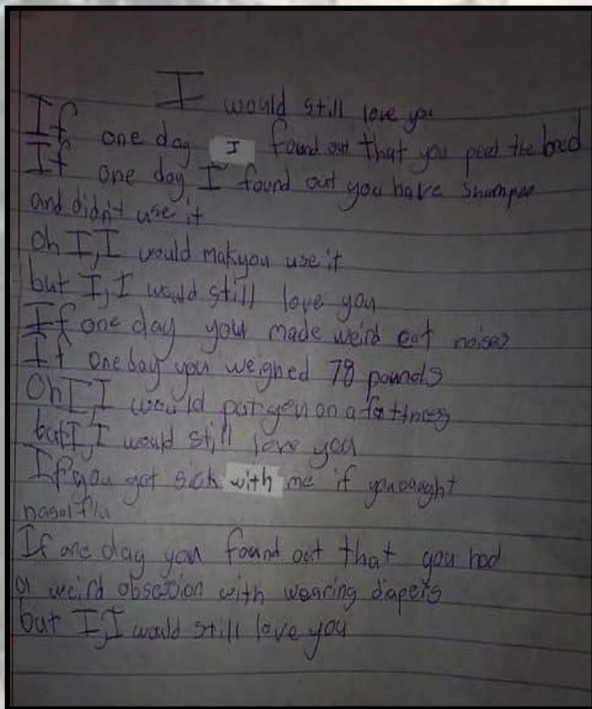 I would still love you
If one day I found out that you peed the bed
If one day I found out you have shampoo
and didn't use it
Oh I, I would mak you use it
but I, I would still love you
If one day you made weird cat noises
If one day you weighed 78 pounds
Oh I, I would put you on a
but I, I would still love you
If you got sick with me if you cought
nasal flu
If one day you found out that you had
a weird obsession with wearing diapers
but I, I would still love you